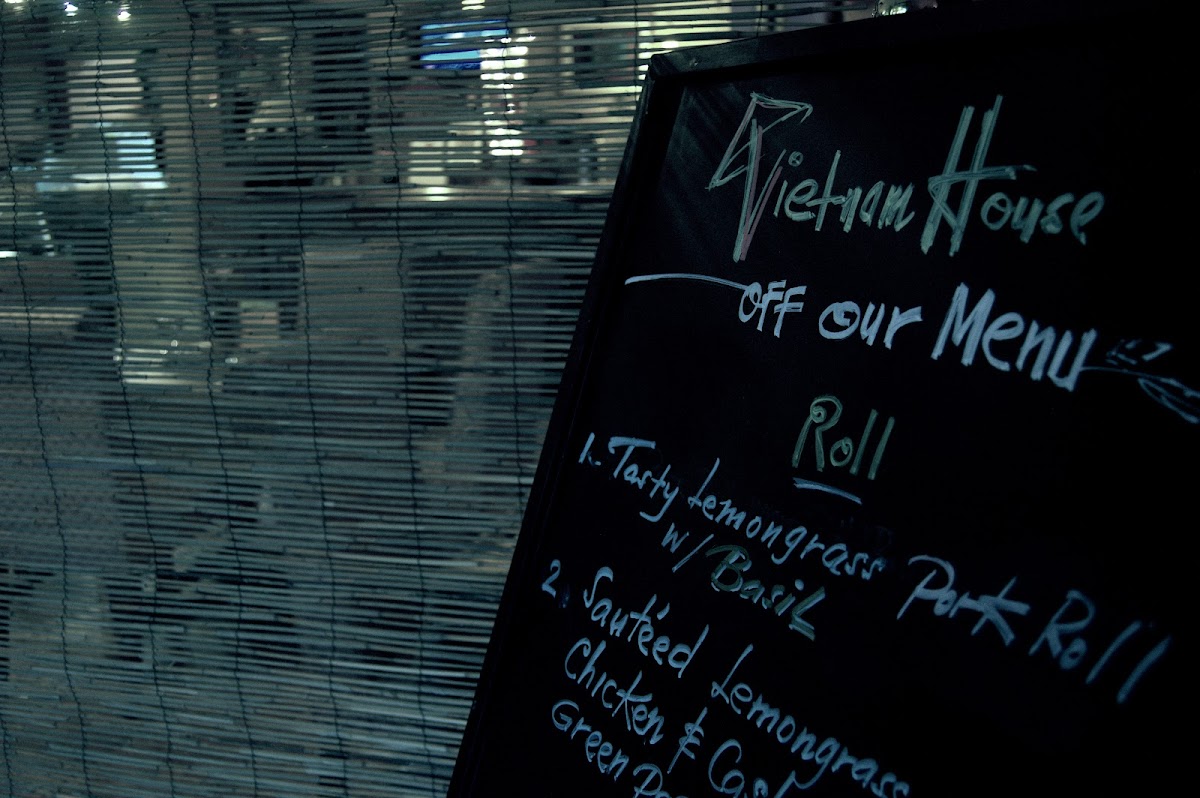 Vietnam House
off our Menu
Roll
1. Tasty Lemongrass Pork Roll
w/ Basil
2. Sautéed Lemongrass
Chicken &
Green